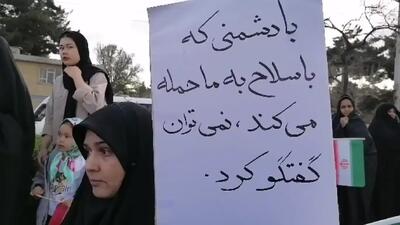 با دشمنی که
با سلاح به ما حمله
می کند، نمی توان
گفتگو کرد.